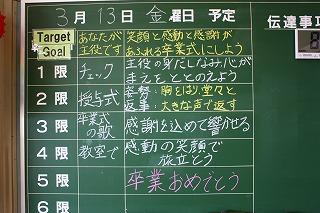 3月13日金曜日 予定
伝達事項
Target Goal
あなたが主役です
笑顔と感動と感謝が
あふれる卒業式にしよう
1限 チェック
主役の身だしなみ、心が
まえをととのえよう
2限 授与式
姿勢:胸をはり、堂々と
返事:大きな声で返す
3限 卒業式の歌
感謝を込めて響かせる
4限 教室で
感動の笑顔で
旅立とう
5限
卒業おめでとう
6限